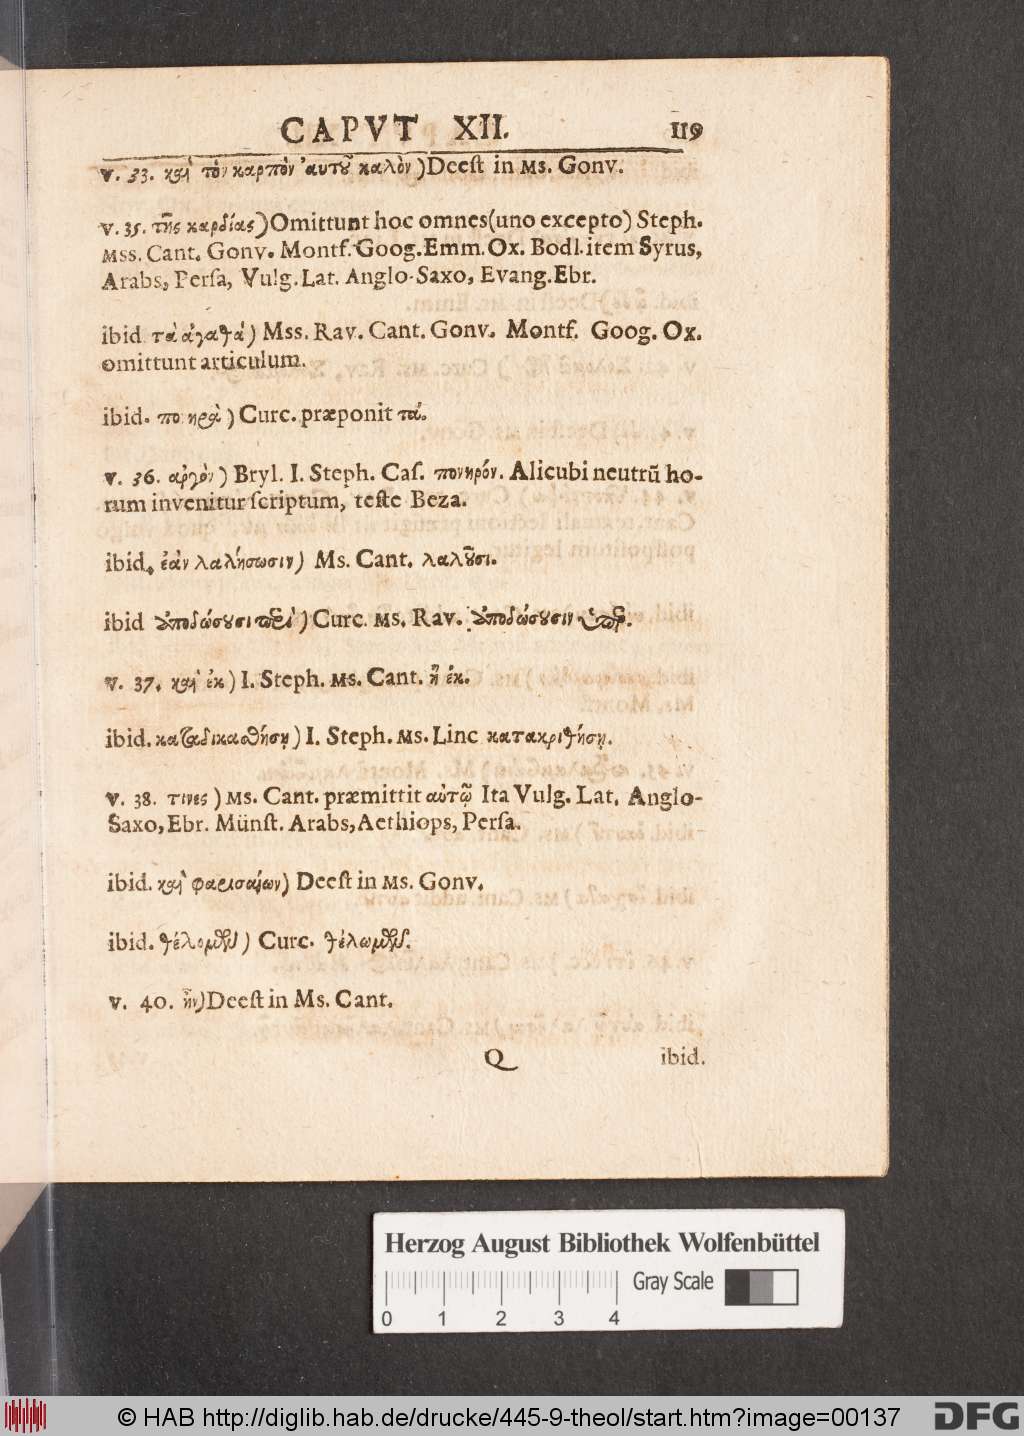 CAPVT XII. 119
v. 33. καὶ τὸν καρπὸν ἀυτοῦ καλὸν) Deest in Ms. Gonv.
v. 35. τῆς καρδίας) Omittunt hoc omnes (uno excepto) Steph.
Mss. Cant. Gonv. Montf. Goog. Emm. Ox. Bodl. item Syrus,
Arabs, Persa, Vulg. Lat. Anglo-Saxo, Evang. Ebr.
ibid τὰ ἀγαθά) Mss. Rav. Cant. Gonv. Montf. Goog. Ox.
omittunt articulum.
ibid. πονηρὰ) Curc. præponit τά.
v. 36. αργὸν) Bryl. I. Steph. Cas. πονηρόν. Alicubi neutrũ ho-
rum invenitur scriptum, teste Beza.
ibid. ἐάν λαλήσωσιν) Ms. Cant. λαλοῦσι.
ibid ἀποδώσουσι περὶ) Curc. Ms. Rav. ἀποδώσουσιν ὑπὲρ.
v. 37. καὶ ἐκ) I. Steph. Ms. Cant. ἢ ἐκ.
ibid. καταδικασθήσῃ) I. Steph. Ms. Linc κατακριθήσῃ.
v. 38. τινες) Ms. Cant. præmittit αὐτῷ Ita Vulg. Lat. Anglo-
Saxo, Ebr. Münst. Arabs, Aethiops, Persa.
ibid. καὶ φαρισαίων) Deest in Ms. Gonv.
ibid. θέλομεν) Curc. θέλωμεν.
v. 40. ἦν) Deest in Ms. Cant.
Q ibid.
Herzog August Bibliothek Wolfenbüttel
Gray Scale
0 1 2 3 4
© HAB http://diglib.hab.de/drucke/445-9-theol/start.htm?image=00137
DFG